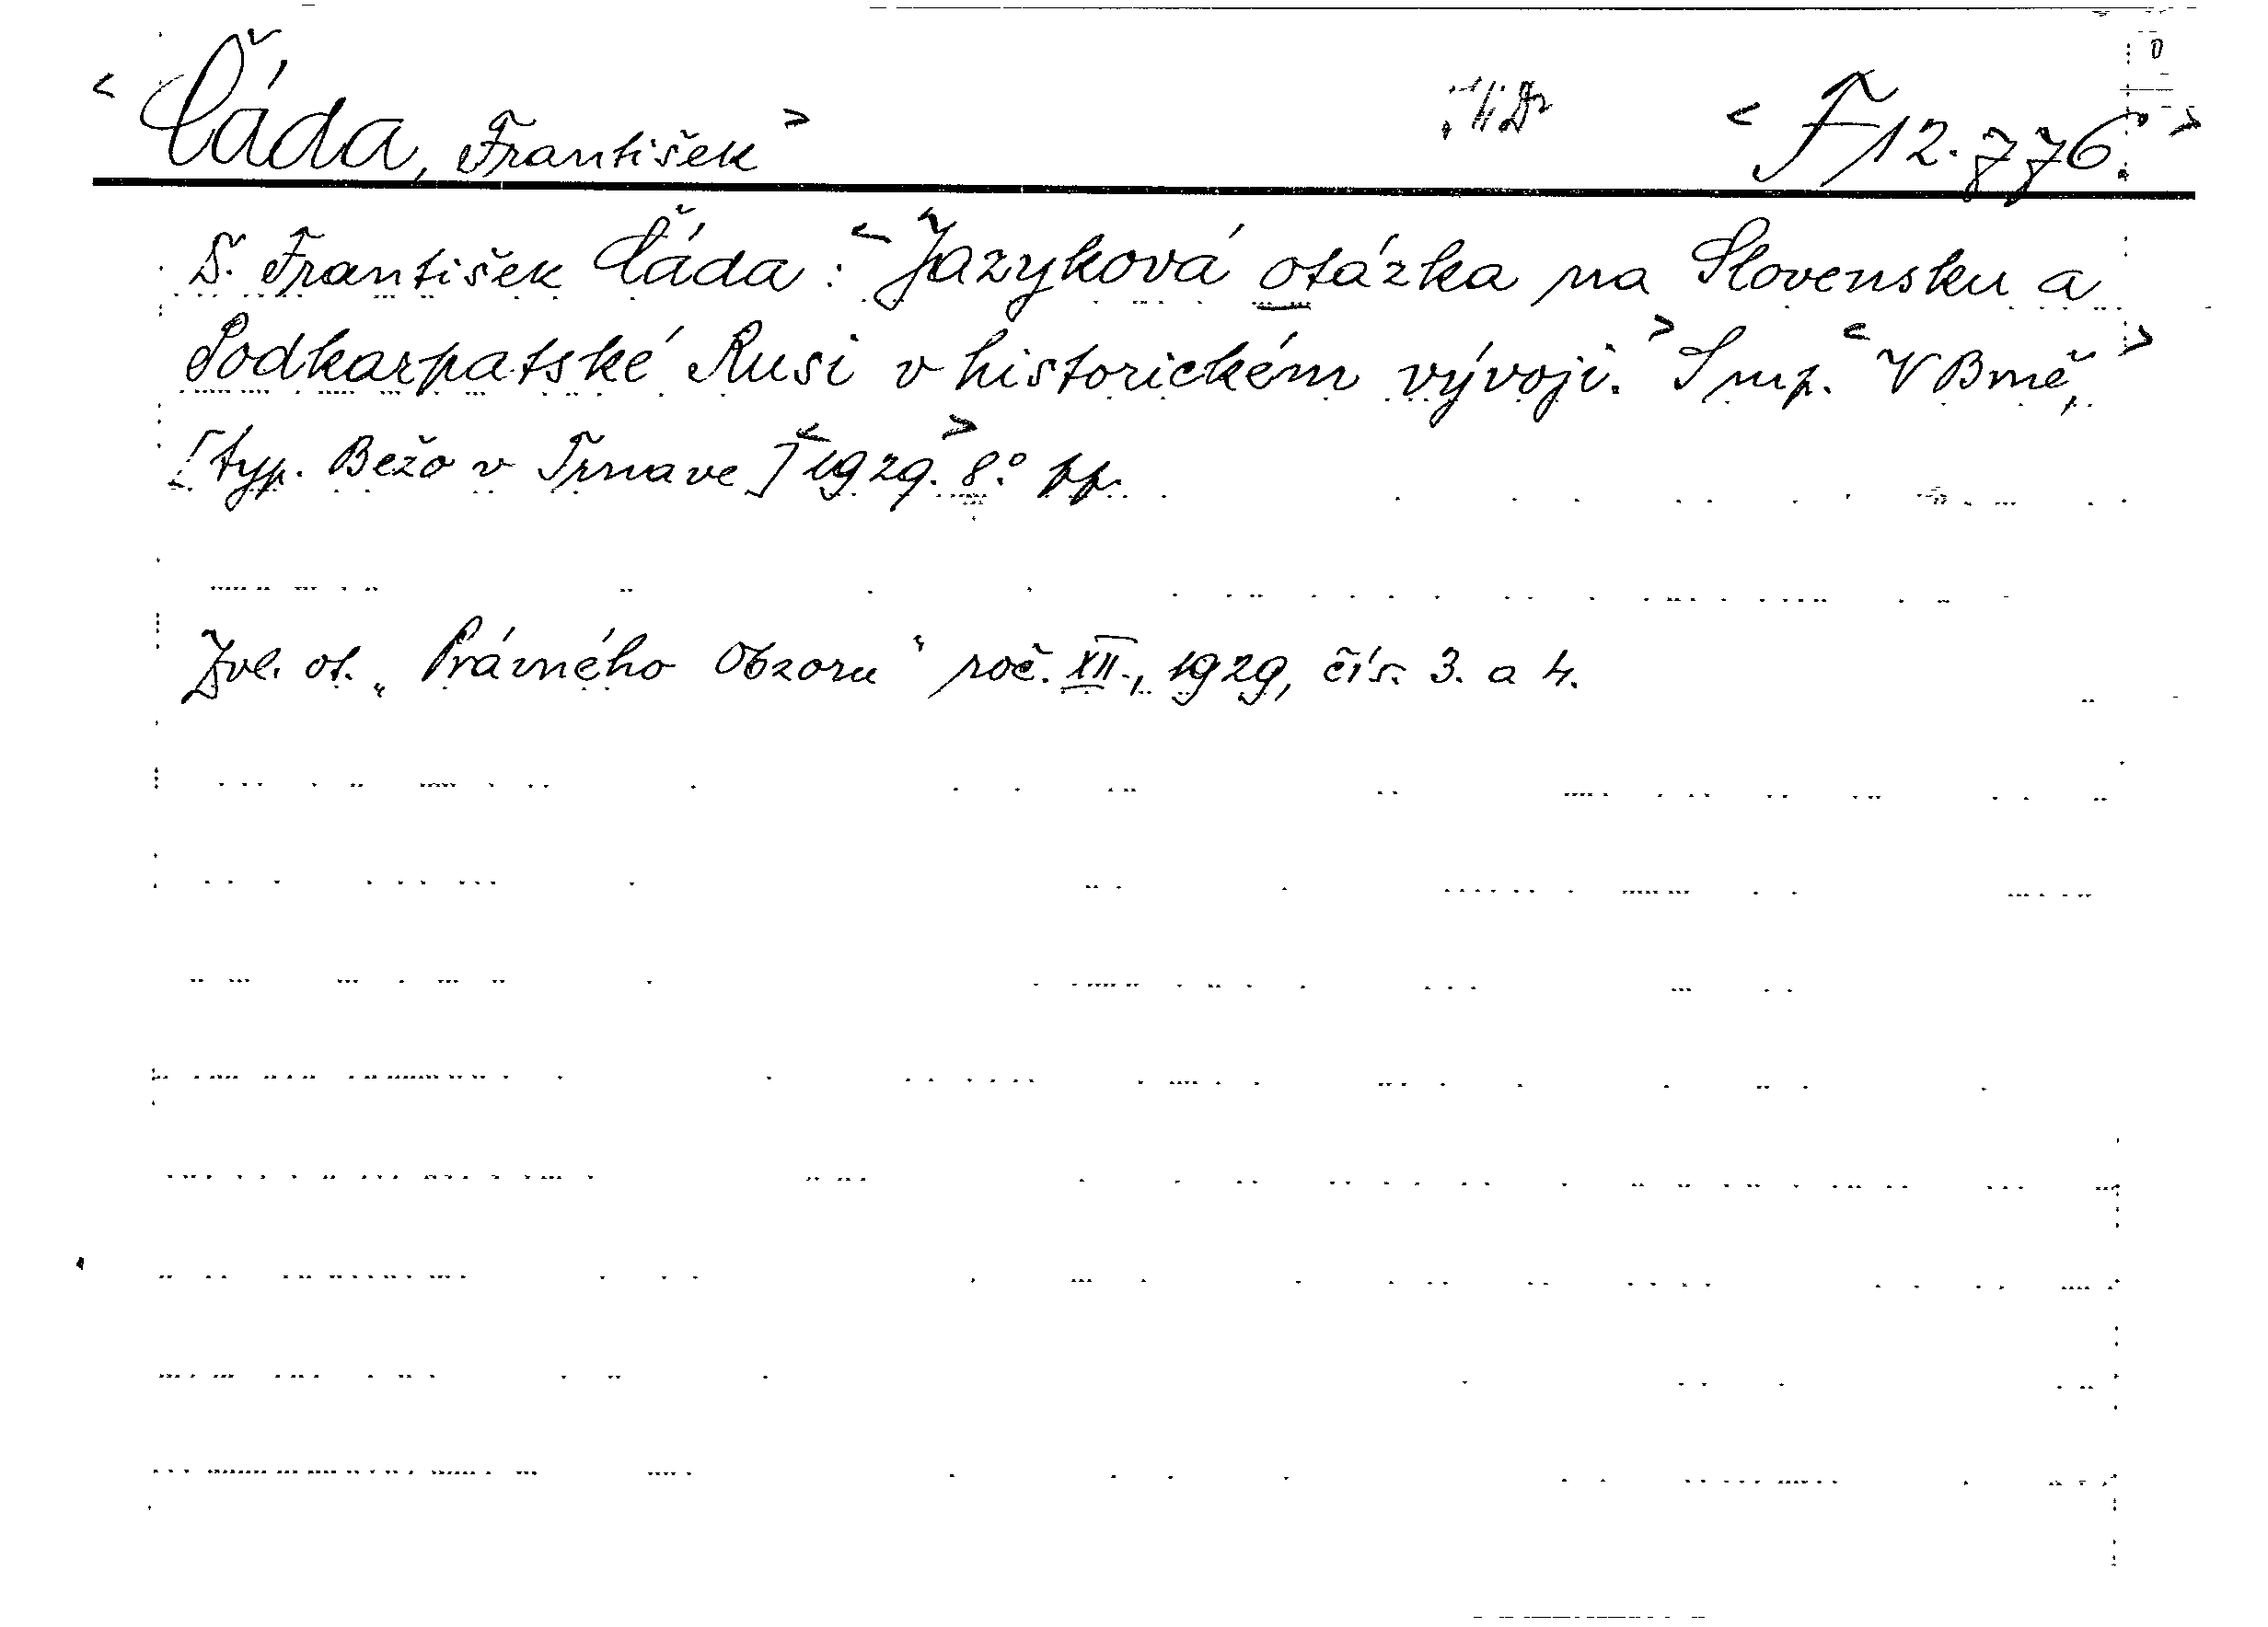 < Čáda, František > < F 12.776. >
D. František Čáda: < Jazyková otázka na Slovensku a
Podkarpatské Rusi v historickém vývoji. > S. < V Brně, >
[typ. Bežo v Trnave] < 1929. > 8.° pp.
Zvl. ot. „Právného Obzoru“ roč. XII., 1929, čís. 3. a 4.